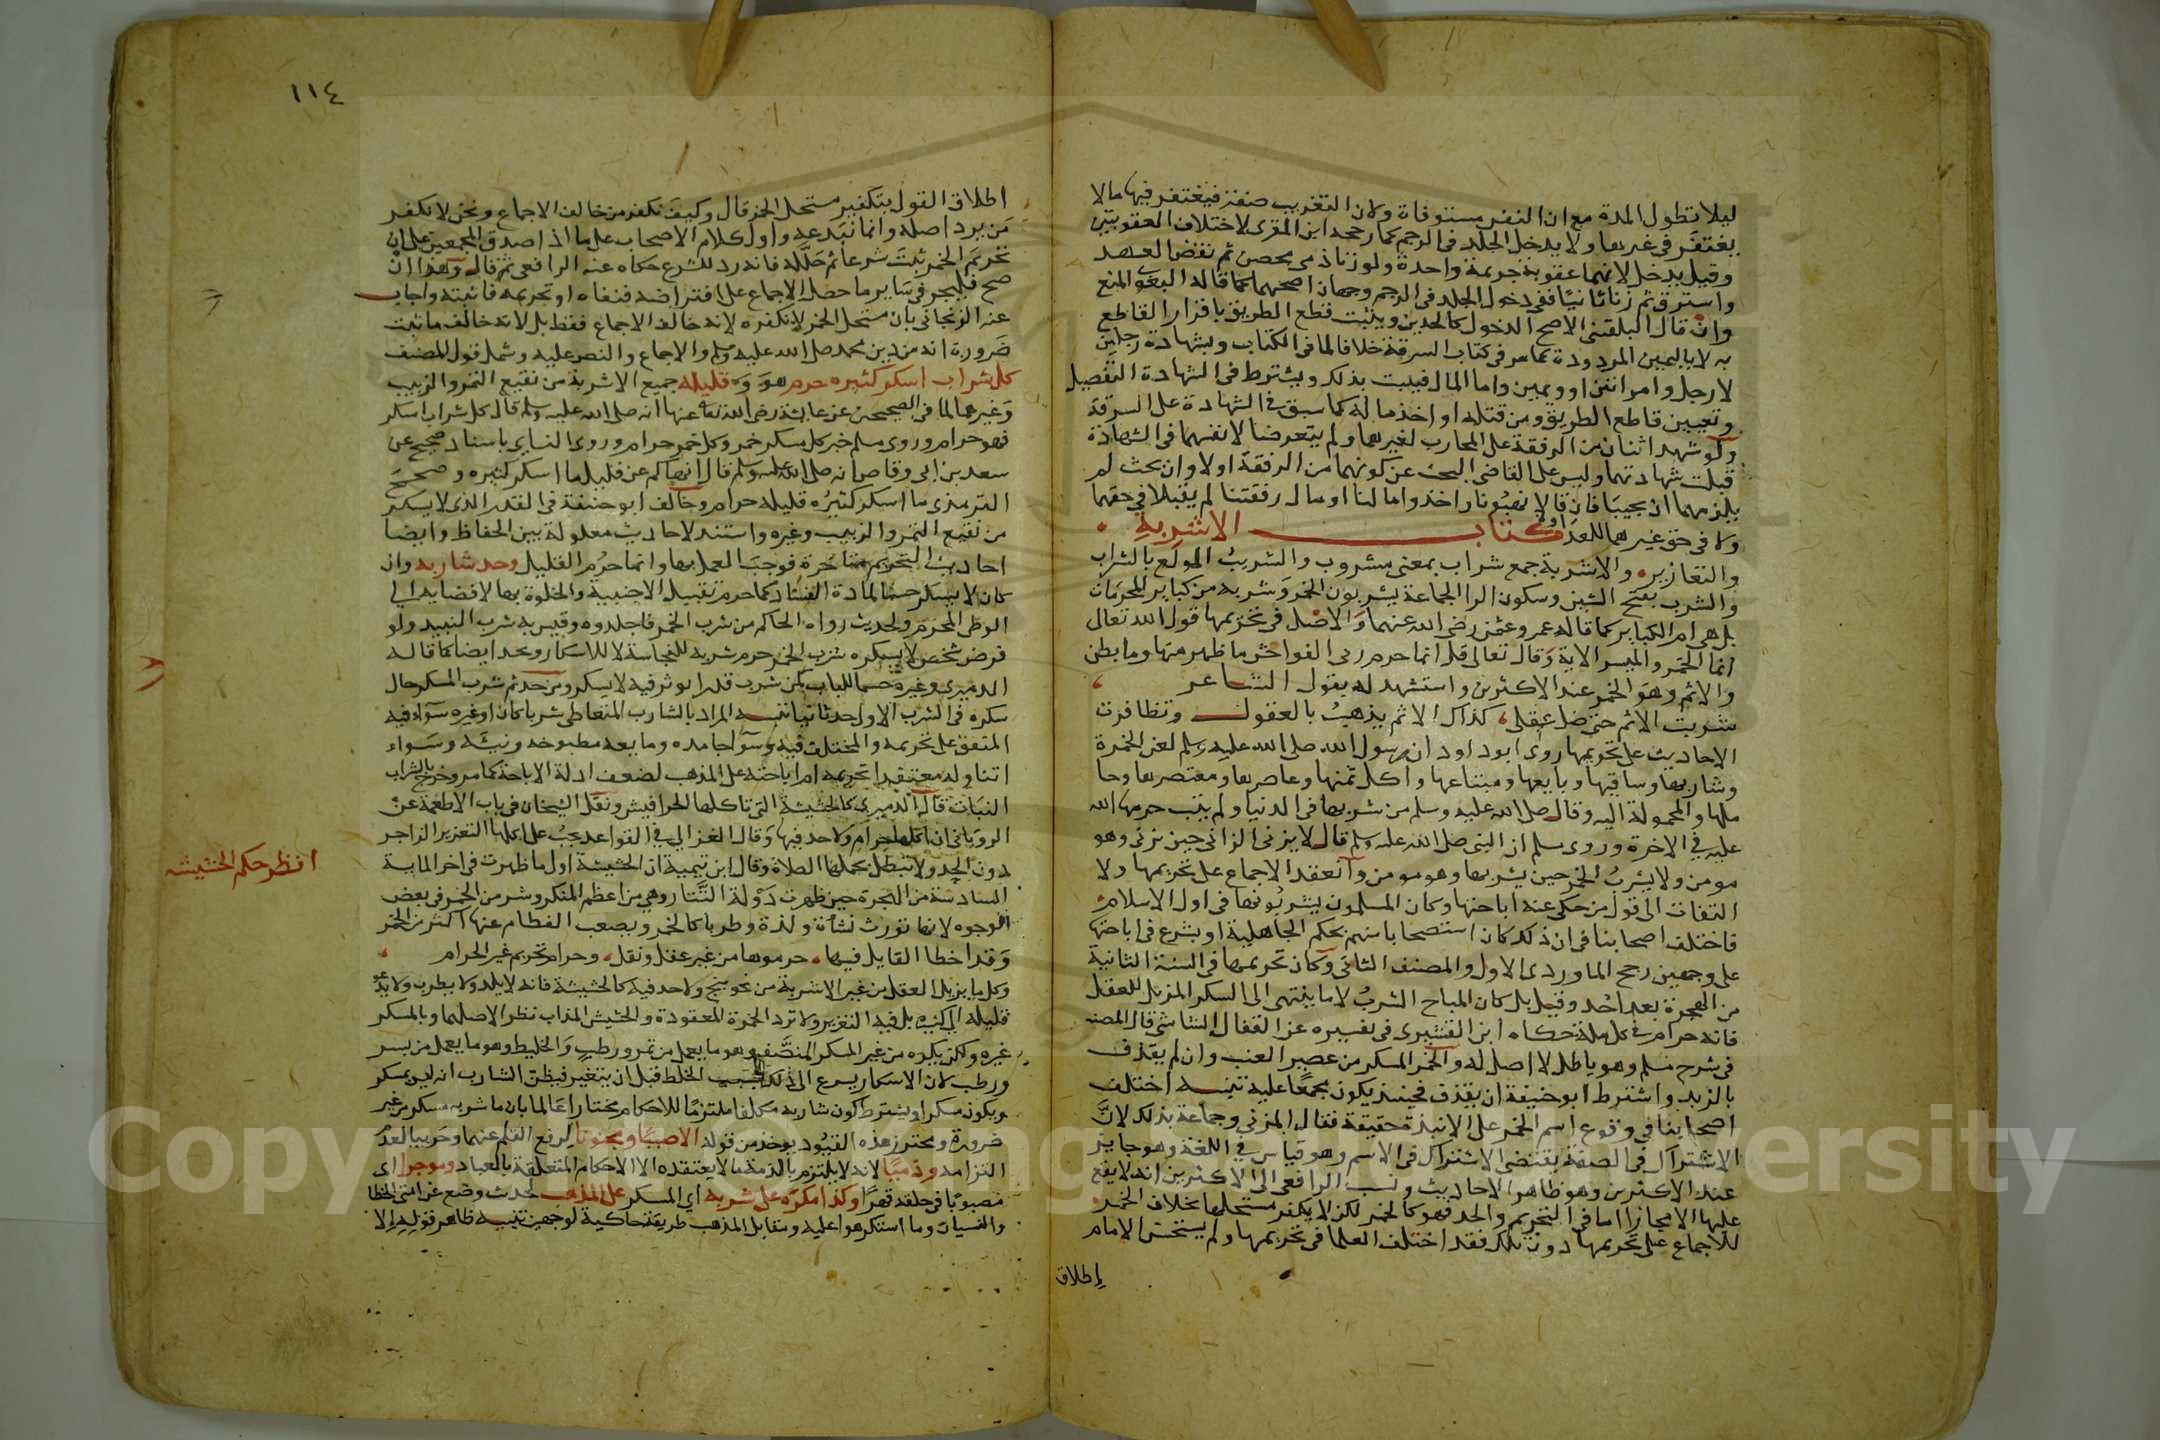 ليلا تطول المدة مع ان النفس مستوفاة ولان التغريب صفة فيغتفر فيها ما لا
يغتفر في غيرها ولا يدخل الجلد في الرجم كما رجحه ابن المقرى لاختلاف العقوبتين
وقيل يدخل لانهما عقوبة جريمة واحدة ولو زنا ذمي محصن ثم نقض العهد
واسترق ثم زنا ثانيا ففي دخول الجلد في الرجم وجهان اصحهما كما قاله البغوي المنع
وان قال البلقيني الاصح الدخول كالحدين ويثبت قطع الطريق باقرار القاطع
به لا باليمين المردودة كما مر في كتاب السرقة خلافا لما في الكتاب وبشهادة رجلين
لا رجل وامراتين او ويمين واما المال فيثبت بذلك ويشترط في الشهادة التفصيل
وتعيين قاطع الطريق ومن قتله او اخذ ماله كما سبق في الشهادة على السرقة
ولو شهد اثنان من الرفقة على المحارب لغيرهما ولم يتعرضا لانفسهما في الشهادة
قبلت شهادتهما وليس على القاضي البحث عن كونهما من الرفقة اولا وان بحث لم
يلزمهما ان يجيبا فان قالا نهبونا واخذوا مالنا او مال رفقتنا لم يقبلا في حقهما
ولا في حق غيرهما للعداوة كتاب الاشربة
والتعازير والاشربة جمع شراب بمعنى مشروب والشريب المولع بالشراب
والشرب بفتح الشين وسكون الرا الجماعة يشربون الخمر وشربه من كباير المحرمات
بل هي ام الكباير كما قاله عمر وعثمن رضي الله عنهما والاصل في تحريمها قوله تعالى
انما الخمر والميسر الاية وقال تعالى قل انما حرم ربي الفواحش ما ظهر منها وما بطن
والاثم وهو الخمر عند الاكثرين واستشهد له بقول الشاعر
شربت الاثم حتى ضل عقلي كذاك الاثم يذهب بالعقول وتظافرت
الاحاديث على تحريمها روى ابو داود ان رسول الله صلى الله عليه وسلم لعن الخمرة
وشاربها وساقيها وبايعها ومبتاعها واكل ثمنها وعاصرها ومعتصرها وحا
ملها والمحمولة اليه وقال صلى الله عليه وسلم من شربها في الدنيا ولم يتب حرمها الله
عليه في الاخرة وروى مسلم ان النبي صلى الله عليه وسلم قال لا يزني الزاني حين يزني وهو
مومن ولا يشرب الخمر حين يشربها وهو مومن وانعقد الاجماع على تحريمها ولا
التفات الى قول من حكي عنه اباحتها وكان المسلمون يشربونها في اول الاسلام
فاختلف اصحابنا في ان ذلك كان استصحابا منهم بحكم الجاهلية او بشرع في اباحتها
على وجهين رجح الماوردي الاول والمصنف الثاني وكان تحريمها في السنة الثانية
من الهجرة بعد احد وقيل بل كان المباح الشرب لا ما ينتهي الى السكر المزيل للعقل
فانه حرام في كل ملة حكاه ابن القشيري في تفسيره عن القفال الشاشي قال المصنف
في شرح مسلم وهو باطل لا اصل له والخمر المسكر من عصير العنب وان لم يقذف
بالزبد واشترط ابو حنيفة ان يقذف فحينئذ يكون مجمعا عليه تنبيه اختلف
اصحابنا في وقوع اسم الخمر على الانبذة حقيقة فقال المزني وجماعة بذلك لان
الاشتراك في الصفة يقتضي الاشتراك في الاسم وهو قياس في اللغة وهو جايز
عند الاكثرين وهو ظاهر الاحاديث ونسب الرافعي الى الاكثرين انه لا يقع
عليها الا مجازا اما في التحريم والحد فهو كالخمر لكن لا يكفر مستحلها بخلاف الخمر
للاجماع على تحريمها دون تلك فقد اختلف العلما في تحريمها ولم يستحسن الامام
إطلاق
١١٤
اطلاق القول بتكفير مستحل الخمر قال وكيف نكفر من خالف الاجماع ونحن لا نكفر
من يرد اصله وانما نبدعه واول كلام الاصحاب على ما اذا صدق المجمعين على ان
تحريم الخمر ثبت شرعا ثم حلله فانه رد للشرع حكاه عنه الرافعي ثم قال وهذا ان
صح فليجر في ساير ما حصل الاجماع على افتراضه فنفاه او تحريمه فاثبته واجاب
عنه الزنجاني بان مستحل الخمر لا نكفره لانه خالف الاجماع فقط بل لانه خالف ما ثبت
ضرورة انه من دين محمد صلى الله عليه وسلم والاجماع والنص عليه وشمل قول المصنف
كل شراب اسكر كثيره حرم هو وقليله جميع الاشربة من نقيع التمر والزبيب
وغيرهما لما في الصحيحين عن عايشة رضي الله تعالى عنها انه صلى الله عليه وسلم قال كل شراب اسكر
فهو حرام وروى مسلم خبر كل مسكر خمر وكل خمر حرام وروى النساي باسناد صحيح عن
سعد بن ابي وقاص انه صلى الله عليه وسلم قال انهاكم عن قليل ما اسكر كثيره وصحح
الترمذي ما اسكر كثيره قليله حرام وخالف ابو حنيفة في القدر الذي لا يسكر
من نقيع التمر والزبيب وغيره واستند لاحاديث معلولة بين الحفاظ وايضا
احاديث التحريم متاخرة فوجب العمل بها وانما حرم القليل وحد شاربه وان
كان لا يسكر حسما لمادة الفساد كما حرم تقبيل الاجنبية والخلوة بها لافضايه الى
الوطى المحرم ولحديث رواه الحاكم من شرب الخمر فاجلدوه وقيس به شرب النبيذ ولو
فرض شخص لا يسكره شرب الخمر حرم شربه للنجاسة لا للاسكار ويحد ايضا كما قاله
الدميري وغيره حسما للباب كمن شرب قدرا لا يوثر فيه لا يسكر ومن حد ثم شرب المسكر حال
سكره في الشرب الاول حد ثانيا تنبيه المراد بالشارب المتعاطي شربا كان او غيره سواء فيه
المتفق على تحريمه والمختلف فيه وسوا جامده ومايعه مطبوخه ونيئه وسواء
اتناوله معتقدا تحريمه ام اباحته على المذهب لضعف ادلة الاباحة كما مر وخرج بالشراب
النبات قال الدميري كالحشيشة التي تاكلها الحرافيش ونقل الشيخان في باب الاطعمة عن
الروياني ان اكلها حرام ولا حد فيها وقال الغزالي في القواعد يجب على اكلها التعزير الزاجر
دون الحد ولا تبطل بحملها الصلاة وقال ابن تيمية ان الحشيشة اول ما ظهرت في اخر الماية
السادسة من الهجرة حين ظهرت دولة التتار وهي من اعظم المنكر وشر من الخمر في بعض
الوجوه لانها تورث نشأة ولذة وطربا كالخمر ويصعب الفطام عنها اكثر من الخمر
وقد اخطا القايل فيها حرموها من غير عقل ونقل وحرام تحريم غير الحرام
وكل ما يزيل العقل من غير الاشربة من نحو بنج ولا حد فيه كالحشيشة فانه لا يلذ ولا يطرب ولا يدعو
قليله الى كثيره بل فيه التعزير ولا ترد الخمرة المعقودة والحشيش المذاب نظرا لاصلهما وبالمسكر
غيره ولكن يكره من غير المسكر المنصف وهو ما يعمل من تمر ورطب والخليط وهو ما يعمل من بسر
ورطب لان الاسكار يسرع الى ذلك بسبب الخلط قبل ان يتغير فيظن الشارب انه ليس بمسكر
ويكون مسكرا ويشترط كون شاربه مكلفا ملتزما للاحكام مختارا عالما بان ما شربه مسكر من غير
ضرورة ومحترز هذه القيود يوخذ من قوله الا صبيا ومجنونا لرفع القلم عنهما وحربيا لعدم
التزامه وذميا لانه لا يلتزم بالذمة ما لا يعتقده الا الاحكام المتعلقة بالعباد وموجرا اي
مصبوبا في حلقه قهرا وكذا مكره على شربه اي المسكر على المذهب لحديث وضع عن امتي الخطا
والنسيان وما استكرهوا عليه ومقابل المذهب طريقة حاكية لوجهين تنبيه ظاهر قوله إلا
انظر حكم الحشيشه
Copyright © King Saud University